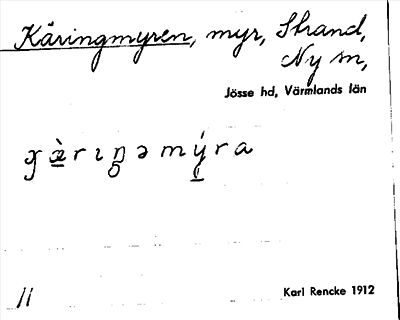 Käringmyren, myr, Strand,
Ny sn,
Jösse hd, Värmlands län
ɟæ̀rɩŋəmýra
11
Karl Rencke 1912